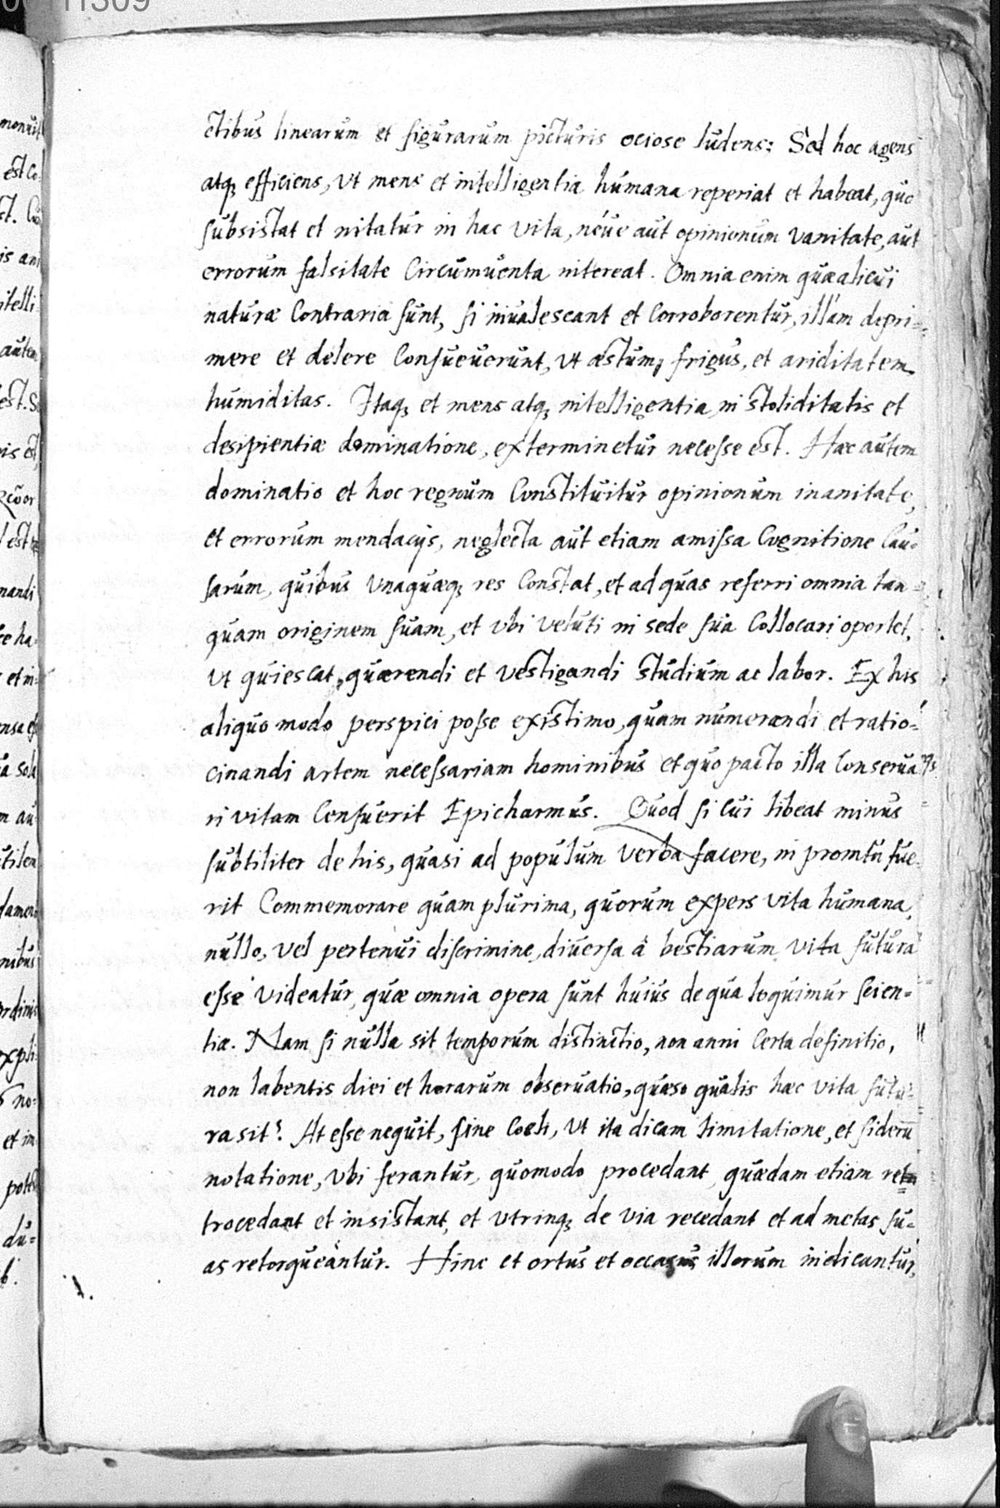 ctibus linearum et figurarum picturis ociose ludens: Sed hoc agens
atq; efficiens, ut mens et intelligentia humana reperiat et habeat, quo
subsistat et nitatur in hac vita, néue aut opinionum vanitate, aut
errorum falsitate circumuenta intereat. Omnia enim quæ alicui
naturæ contraria sunt, si inualescant et corroborentur, illam depri=
mere et delere consueuerunt, ut æstum, frigus, et ariditatem
humiditas. Itaq; et mens atq; intelligentia, in stoliditatis et
desipientiæ dominatione, exterminetur necesse est. Hæc autem
dominatio et hoc regnum constituitur opinionum inanitate,
et errorum mendacijs, neglecta aut etiam amissa cognitione cau=
sarum, quibus unaquæq; res constat, et ad quas referri omnia tan=
quam originem suam, et ubi veluti in sede sua collocari oportet,
ut quiescat, quærendi et vestigandi studium ac labor. Ex his
aliquo modo perspici posse existimo, quam numerandi et ratio=
cinandi artem necessariam hominibus et quo pacto illa conserua
ri vitam censuerit Epicharmus. Quod si cui libeat minus
subtiliter de his, quasi ad populum verba facere, in promtu fue=
rit commemorare quam plurima, quorum expers vita humana,
nullo, vel pertenui discrimine, diuersa à bestiarum vita futura
esse videatur, quæ omnia opera sunt huius de qua loquimur scien=
tiæ. Nam si nulla sit temporum distinctio, non anni certa definitio,
non labentis diei et horarum obseruatio, quæso qualis hæc vita futu=
ra sit? At esse nequit, sine coeli, ut ita dicam limitatione, et siderū
notatione, ubi ferantur, quomodo procedant, quædam etiam re
trocedant et insistant, et utrinq; de via recedant et ad metas su=
as retorqueantur. Hinc et ortus et occasus illorum indicantur,